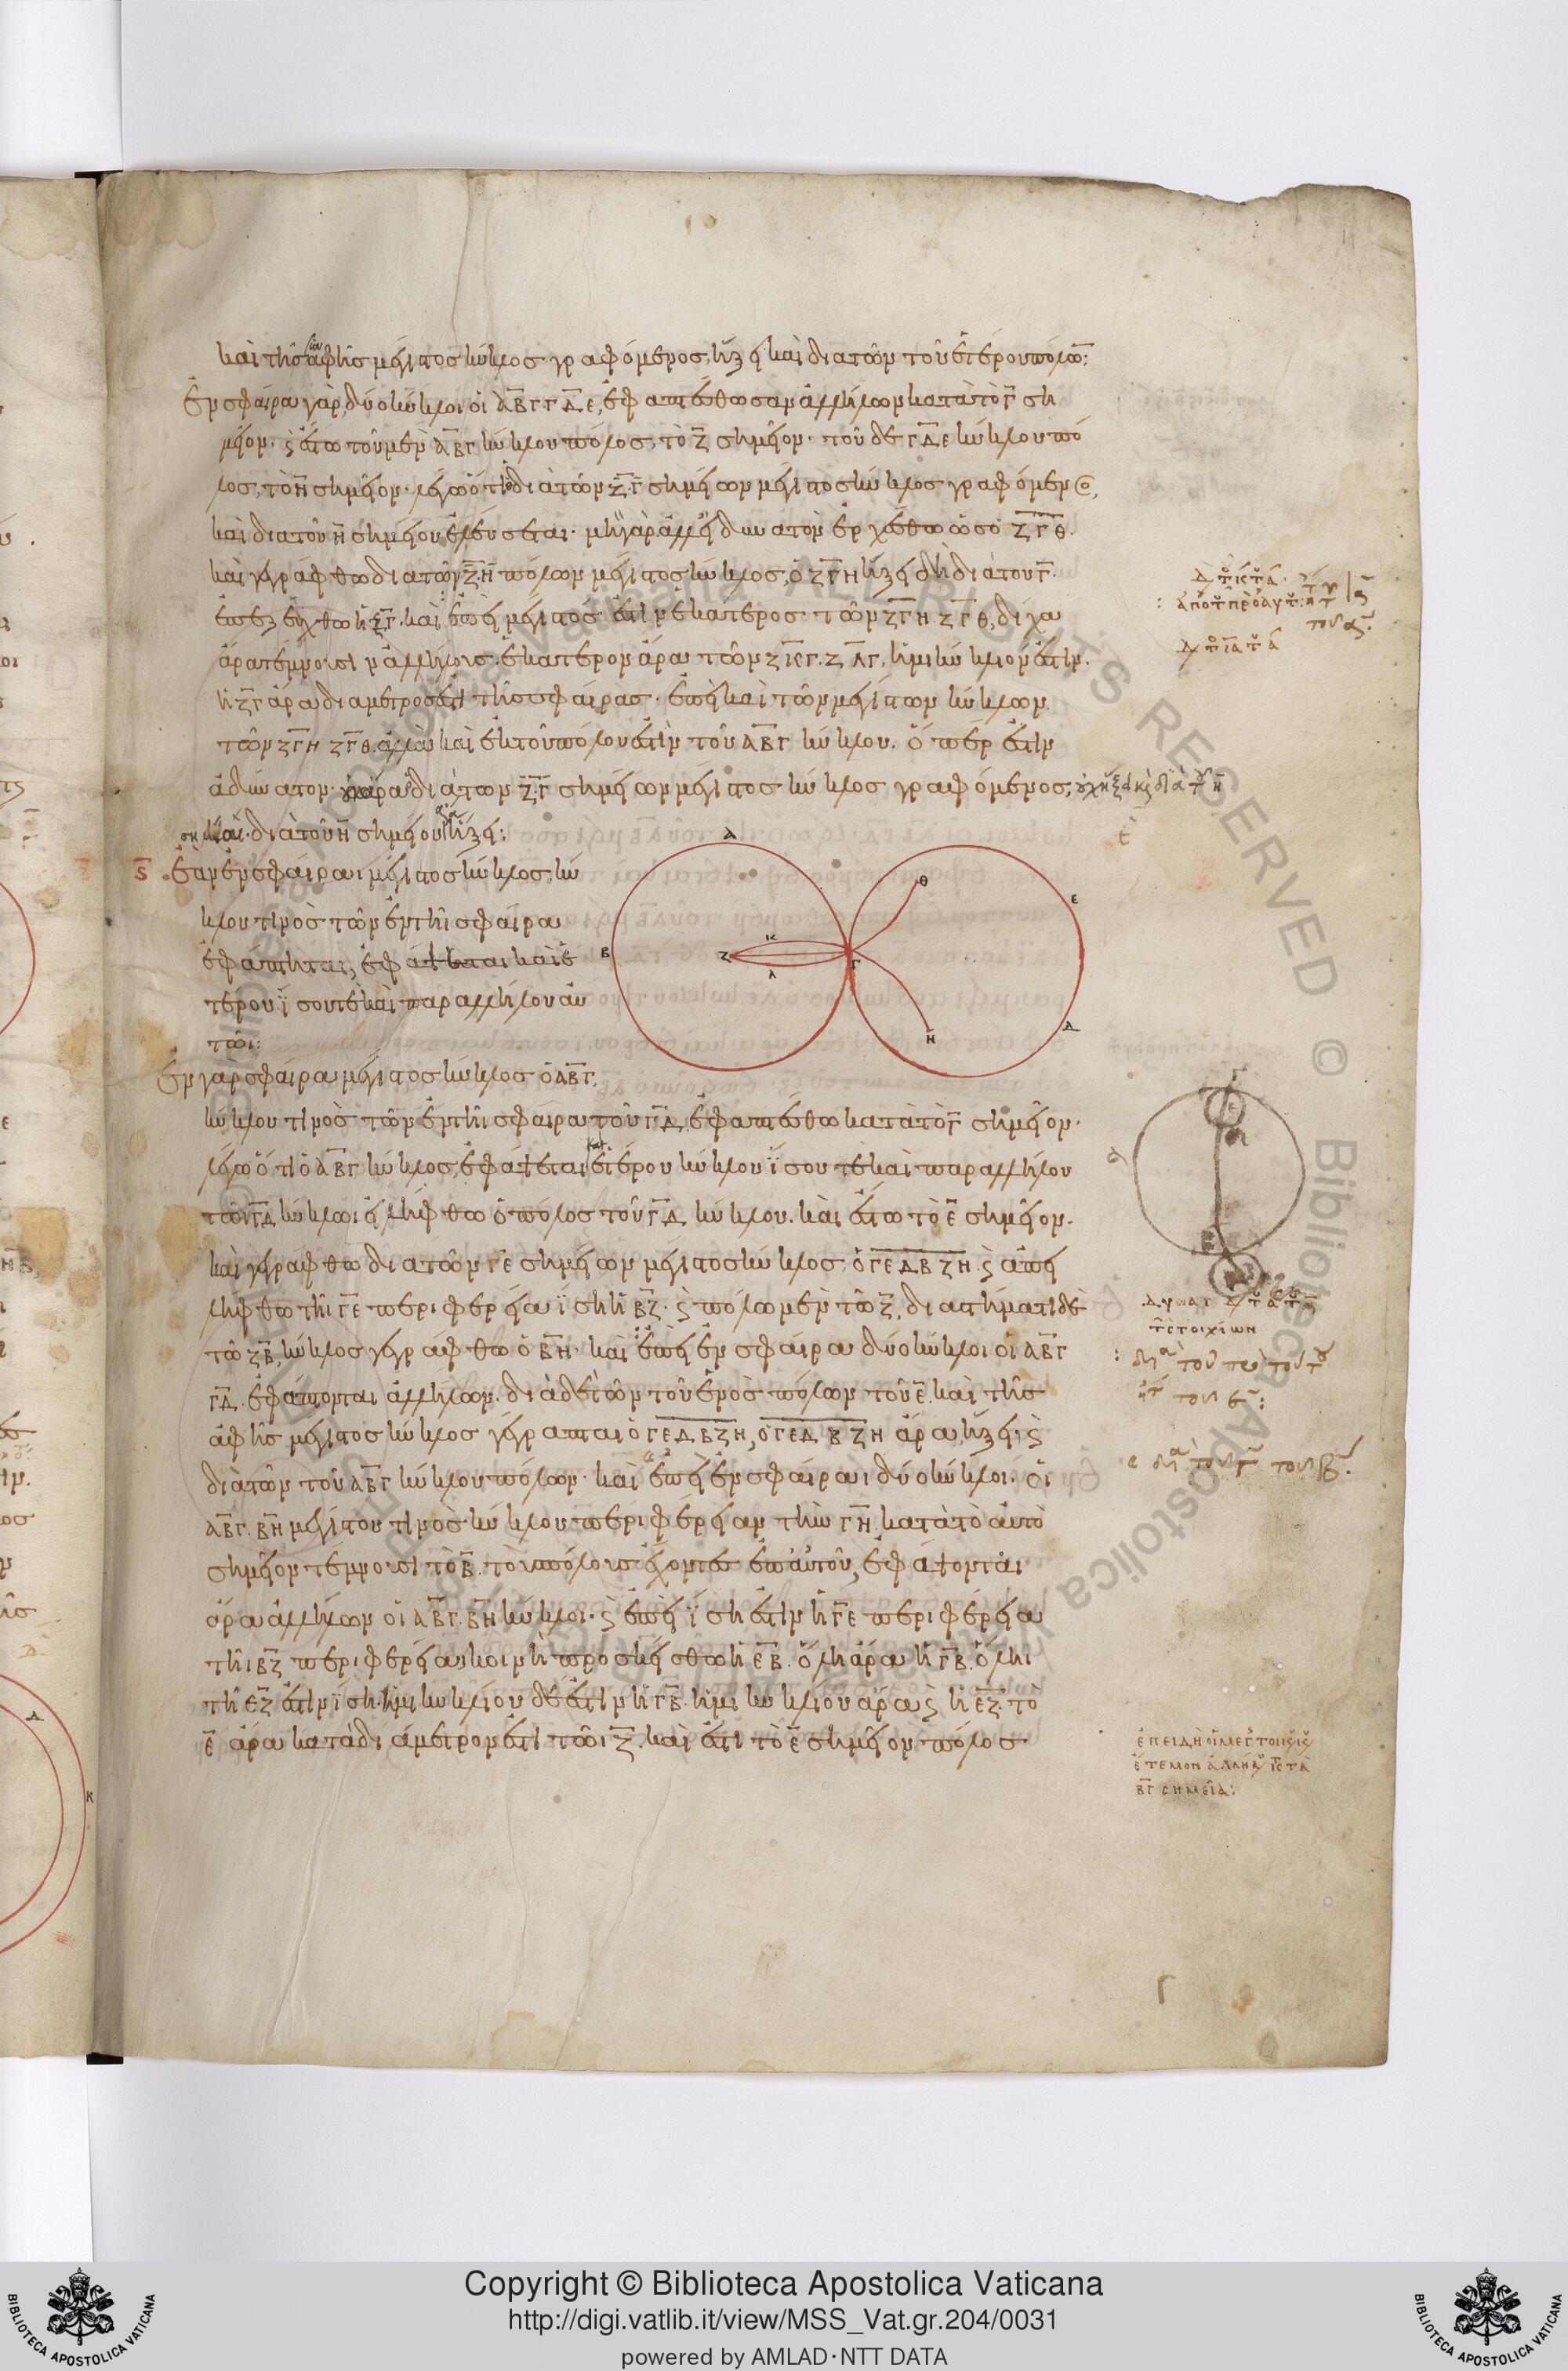 καὶ τῆς ἁφῆς μέγιστος κύκλος γραφόμενος, ἥξει καὶ διὰ τῶν τοῦ ἑτέρου πόλων:
Ἐν σφαίρα γὰρ, δύο κύκλοι οἱ ΑΒΓ ΓΔΕ, ἐφαπτέσθωσαν ἀλλήλων κατὰ τὸ Γ ση
μεῖον· ϗ ἔστω τοῦ μὲν ΑΒΓ κύκλου πόλος, τὸ Ζ σημεῖον· τοῦ δὲ ΓΔΕ κύκλου πό
λος, τὸ Η σημεῖον· λέγω ὅτι ὁ διὰ τῶν Ζ Γ σημείων μέγιστος κύκλος γραφόμενος,
καὶ διὰ τοῦ Η σημείου ἐλεύσεται· μὴ γὰρ ἀλλ' εἰ δυνατὸν ἐρχέσθω ὡς ὁ ΖΓΘ.
καὶ γεγράφθω διὰ τῶν Ζ Η πόλων μέγιστος κύκλος, ὁ ΖΓΗ ἥξει δὴ διὰ τοῦ Γ.
ἐπεζεύχθω ἡ ΖΓ. καὶ ἐπεὶ μέγιστός ἐστιν ἑκάτερος τῶν ΖΓΗ ΖΓΘ, δίχα
ἄρα τέμνουσιν ἀλλήλους. ἑκάτερον ἄρα τῶν ΖΚΓ. ΖΛΓ, ἡμικύκλιόν ἐστιν.
ἡ ΖΓ ἄρα διάμετρός ἐστι τῆς σφαίρας. ἐπεὶ καὶ τῶν μεγίστων κύκλων
τῶν ΖΓΗ ΖΓΘ. ἀλλὰ καὶ ἐκ τοῦ πόλου ἐστὶν τοῦ ΑΒΓ κύκλου. ὅπερ ἐστὶν
ἀδύνατον· ἄρα ὁ διὰ τῶν Ζ Γ σημείων μέγιστος κύκλος γραφόμενος,
καὶ διὰ τοῦ Η σημείου ἥξει:
ϛ Ἐὰν ἐν σφαίραι μέγιστος κύκλος, κύ
κλου τινὸς τῶν ἐν τῆι σφαίρα
ἐφάπτηται, ἐφάψεται καὶ ἑ
τέρου ἴσου τε καὶ παραλλήλου αὐ
τῶι:
Α Θ Ε Β Κ Ζ Λ Γ Η Δ
Ἐν γὰρ σφαίρα μέγιστος κύκλος ὁ ΑΒΓ,
κύκλου τινὸς τῶν ἐν τῆι σφαίρα τοῦ ΓΔ ἐφαπτέσθω κατὰ τὸ Γ σημεῖον·
λέγω ὅτι ὁ ΑΒΓ κύκλος, ἐφάψεται καὶ ἑτέρου κύκλου ἴσου τε καὶ παραλλήλου
τῶι ΓΔ κύκλωι εἰλήφθω ὁ πόλος τοῦ ΓΔ κύκλου. καὶ ἔστω τὸ Ε σημεῖον.
καὶ γεγράφθω διὰ τῶν ΓΕ σημείων μέγιστος κύκλος· ὁ ΓΕΔΒΖΗ. ϗ ἀπει
λήφθω τῆι ΓΕ περιφερεία ἴση ἡ ΒΖ· ϗ πόλω μὲν τῶ Ζ, διαστήματι δὲ
τῶ ΖΒ, κύκλος γεγράφθω ὁ ΒΗ· καὶ ἐπεὶ ἐν σφαίρα δύο κύκλοι οἱ ΑΒΓ
ΓΔ. ἐφάπτονται ἀλλήλων. διὰ δὲ τῶν τοῦ ἑνὸς πόλων τοῦ Ε καὶ τῆς
ἁφῆς μέγιστος κύκλος γέγραπται ὁ ΓΕΔΒΖΗ, ὁ ΓΕΔΒΖΗ ἄρα, ἥξει ϗ
διὰ τῶν τοῦ ΑΒΓ κύκλου πόλων· καὶ ἐπεὶ ἐν σφαίραι δύο κύκλοι. οἱ
ΑΒΓ. ΒΗ μεγίστου τινὸς κύκλου περιφέρειαν τὴν ΓΗ κατὰ τὸ αὐτὸ
σημεῖον τέμνουσι τὸ Β. τοὺς πόλους ἔχοντες ἐπ' αὐτοῦ, ἐφάψονται
ἄρα ἀλλήλων οἱ ΑΒΓ. ΒΗ κύκλοι· ϗ ἐπεὶ ἴση ἐστὶν ἡ ΓΕ περιφέρεια
τῆι ΒΖ περιφερεία, κοινὴ προσκείσθω ἡ ΕΒ. ὅλη ἄρα ἡ ΓΒ. ὅλη
τῆ ΕΖ ἐστὶν ἴση. ἡμικυκλίου δέ ἐστιν ἡ ΓΒ. ἡμικυκλίου ἄρα ϗ ἡ ΕΖ. τὸ
Ε ἄρα κατὰ διάμετρόν ἐστι τῶι Ζ. καὶ ἔστι τὸ Ε σημεῖον πόλος
Copyright © Biblioteca Apostolica Vaticana
http://digi.vatlib.it/view/MSS_Vat.gr.204/0031
powered by AMLAD·NTT DATA